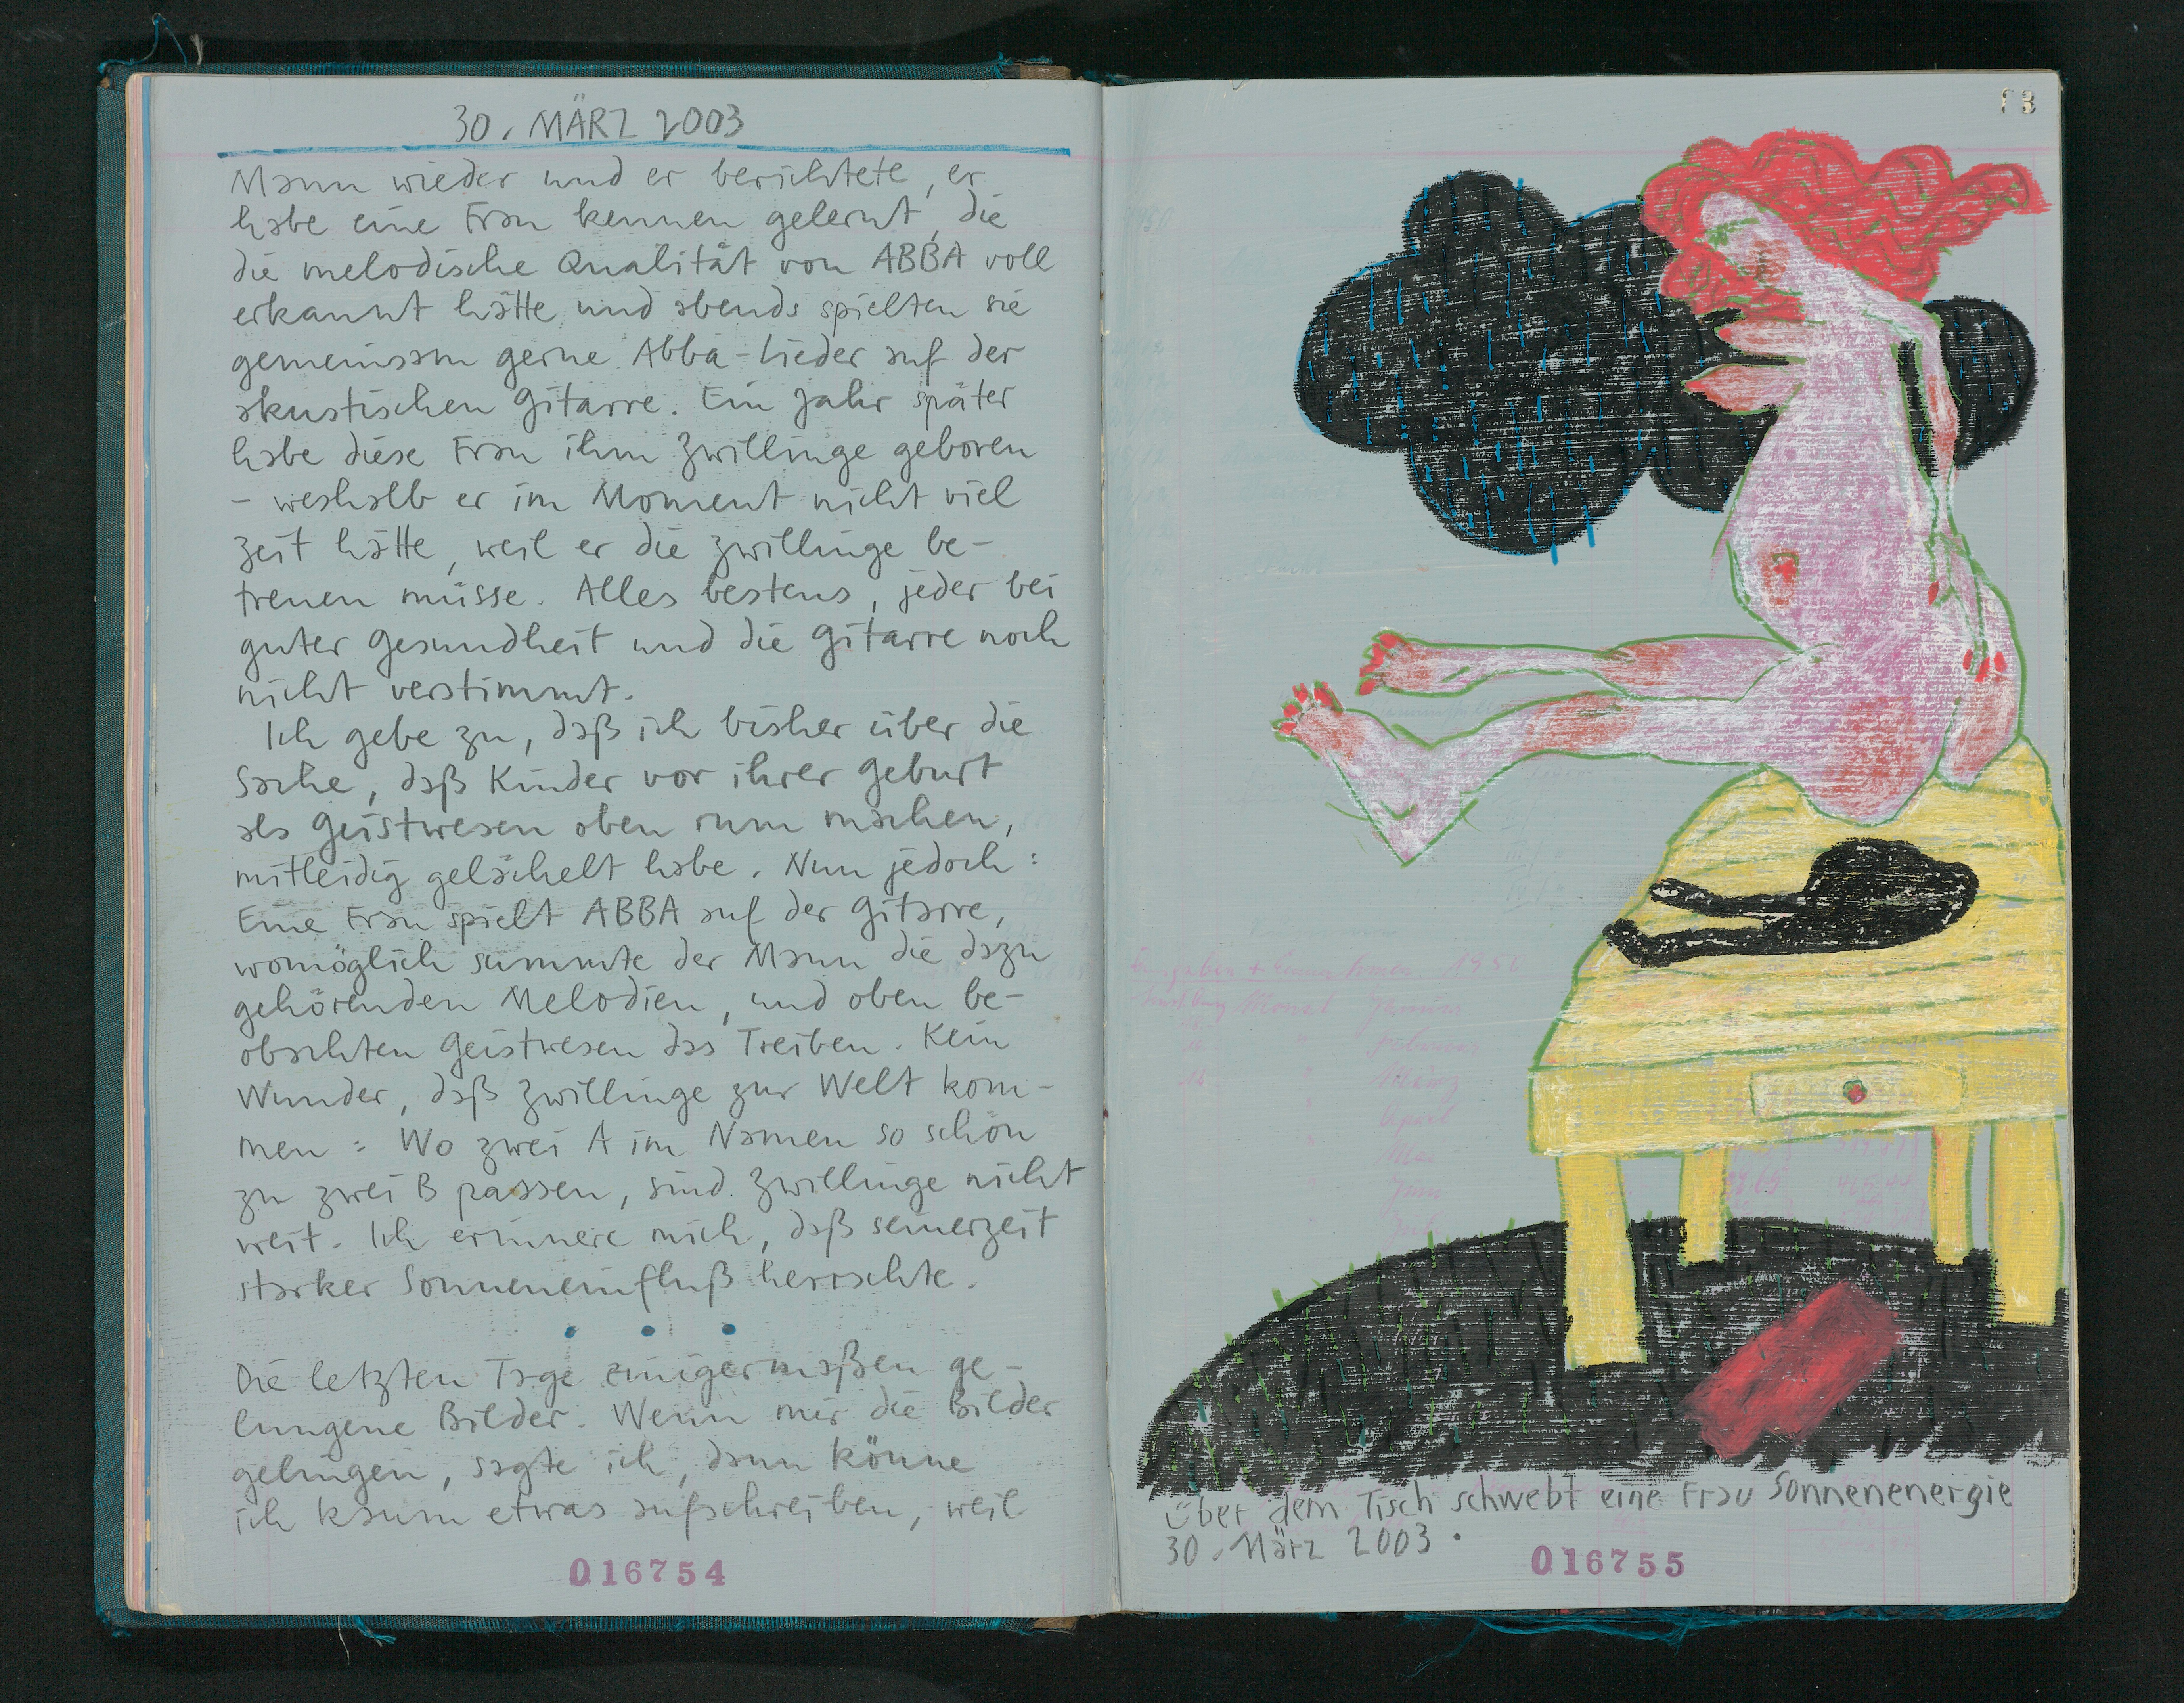 30. MÄRZ 2003
Mann wieder und er berichtete, er
habe eine Frau kennen gelernt, die
die melodische Qualität von ABBA voll
erkannt hätte und abends spielten sie
gemeinsam gerne Abba-Lieder auf der
akustischen Gitarre. Ein Jahr später
habe diese Frau ihm Zwillinge geboren
- weshalb er im Moment nicht viel
Zeit hätte, weil er die Zwillinge be-
treuen müsse. Alles bestens, jeder bei
guter Gesundheit und die Gitarre noch
nicht verstimmt.
Ich gebe zu, daß ich bisher über die
Sache, daß Kinder vor ihrer Geburt
als Geistwesen oben rum machen,
mitleidig gelächelt habe. Nun jedoch:
Eine Frau spielt ABBA auf der Gitarre,
womöglich summte der Mann die dazu
gehörenden Melodien, und oben be-
obachten Geistwesen das Treiben. Kein
Wunder, daß Zwillinge zur Welt kom-
men: Wo zwei A im Namen so schön
zu zwei B passen, sind Zwillinge nicht
weit. Ich erinnere mich, daß seinerzeit
starker Sonneneinfluß herrschte.
Die letzten Tage einigermaßen ge-
lungene Bilder. Wenn mir die Bilder
gelingen, sagte ich, dann könne
ich kaum etwas aufschreiben, weil
016754
1956
Monat Januar
Februar
März
April
Mai
Juni
Juli
über dem Tisch schwebt eine Frau Sonnenenergie
30. März 2003.
016755